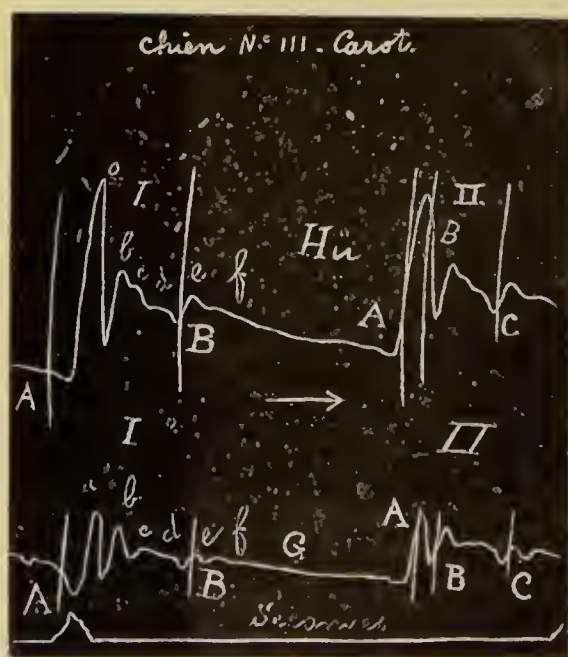 Chien No III. Carot.
I II
b c d e f Hü B
A B A C
I II
a b c d e f G A
A B B C
Secondes